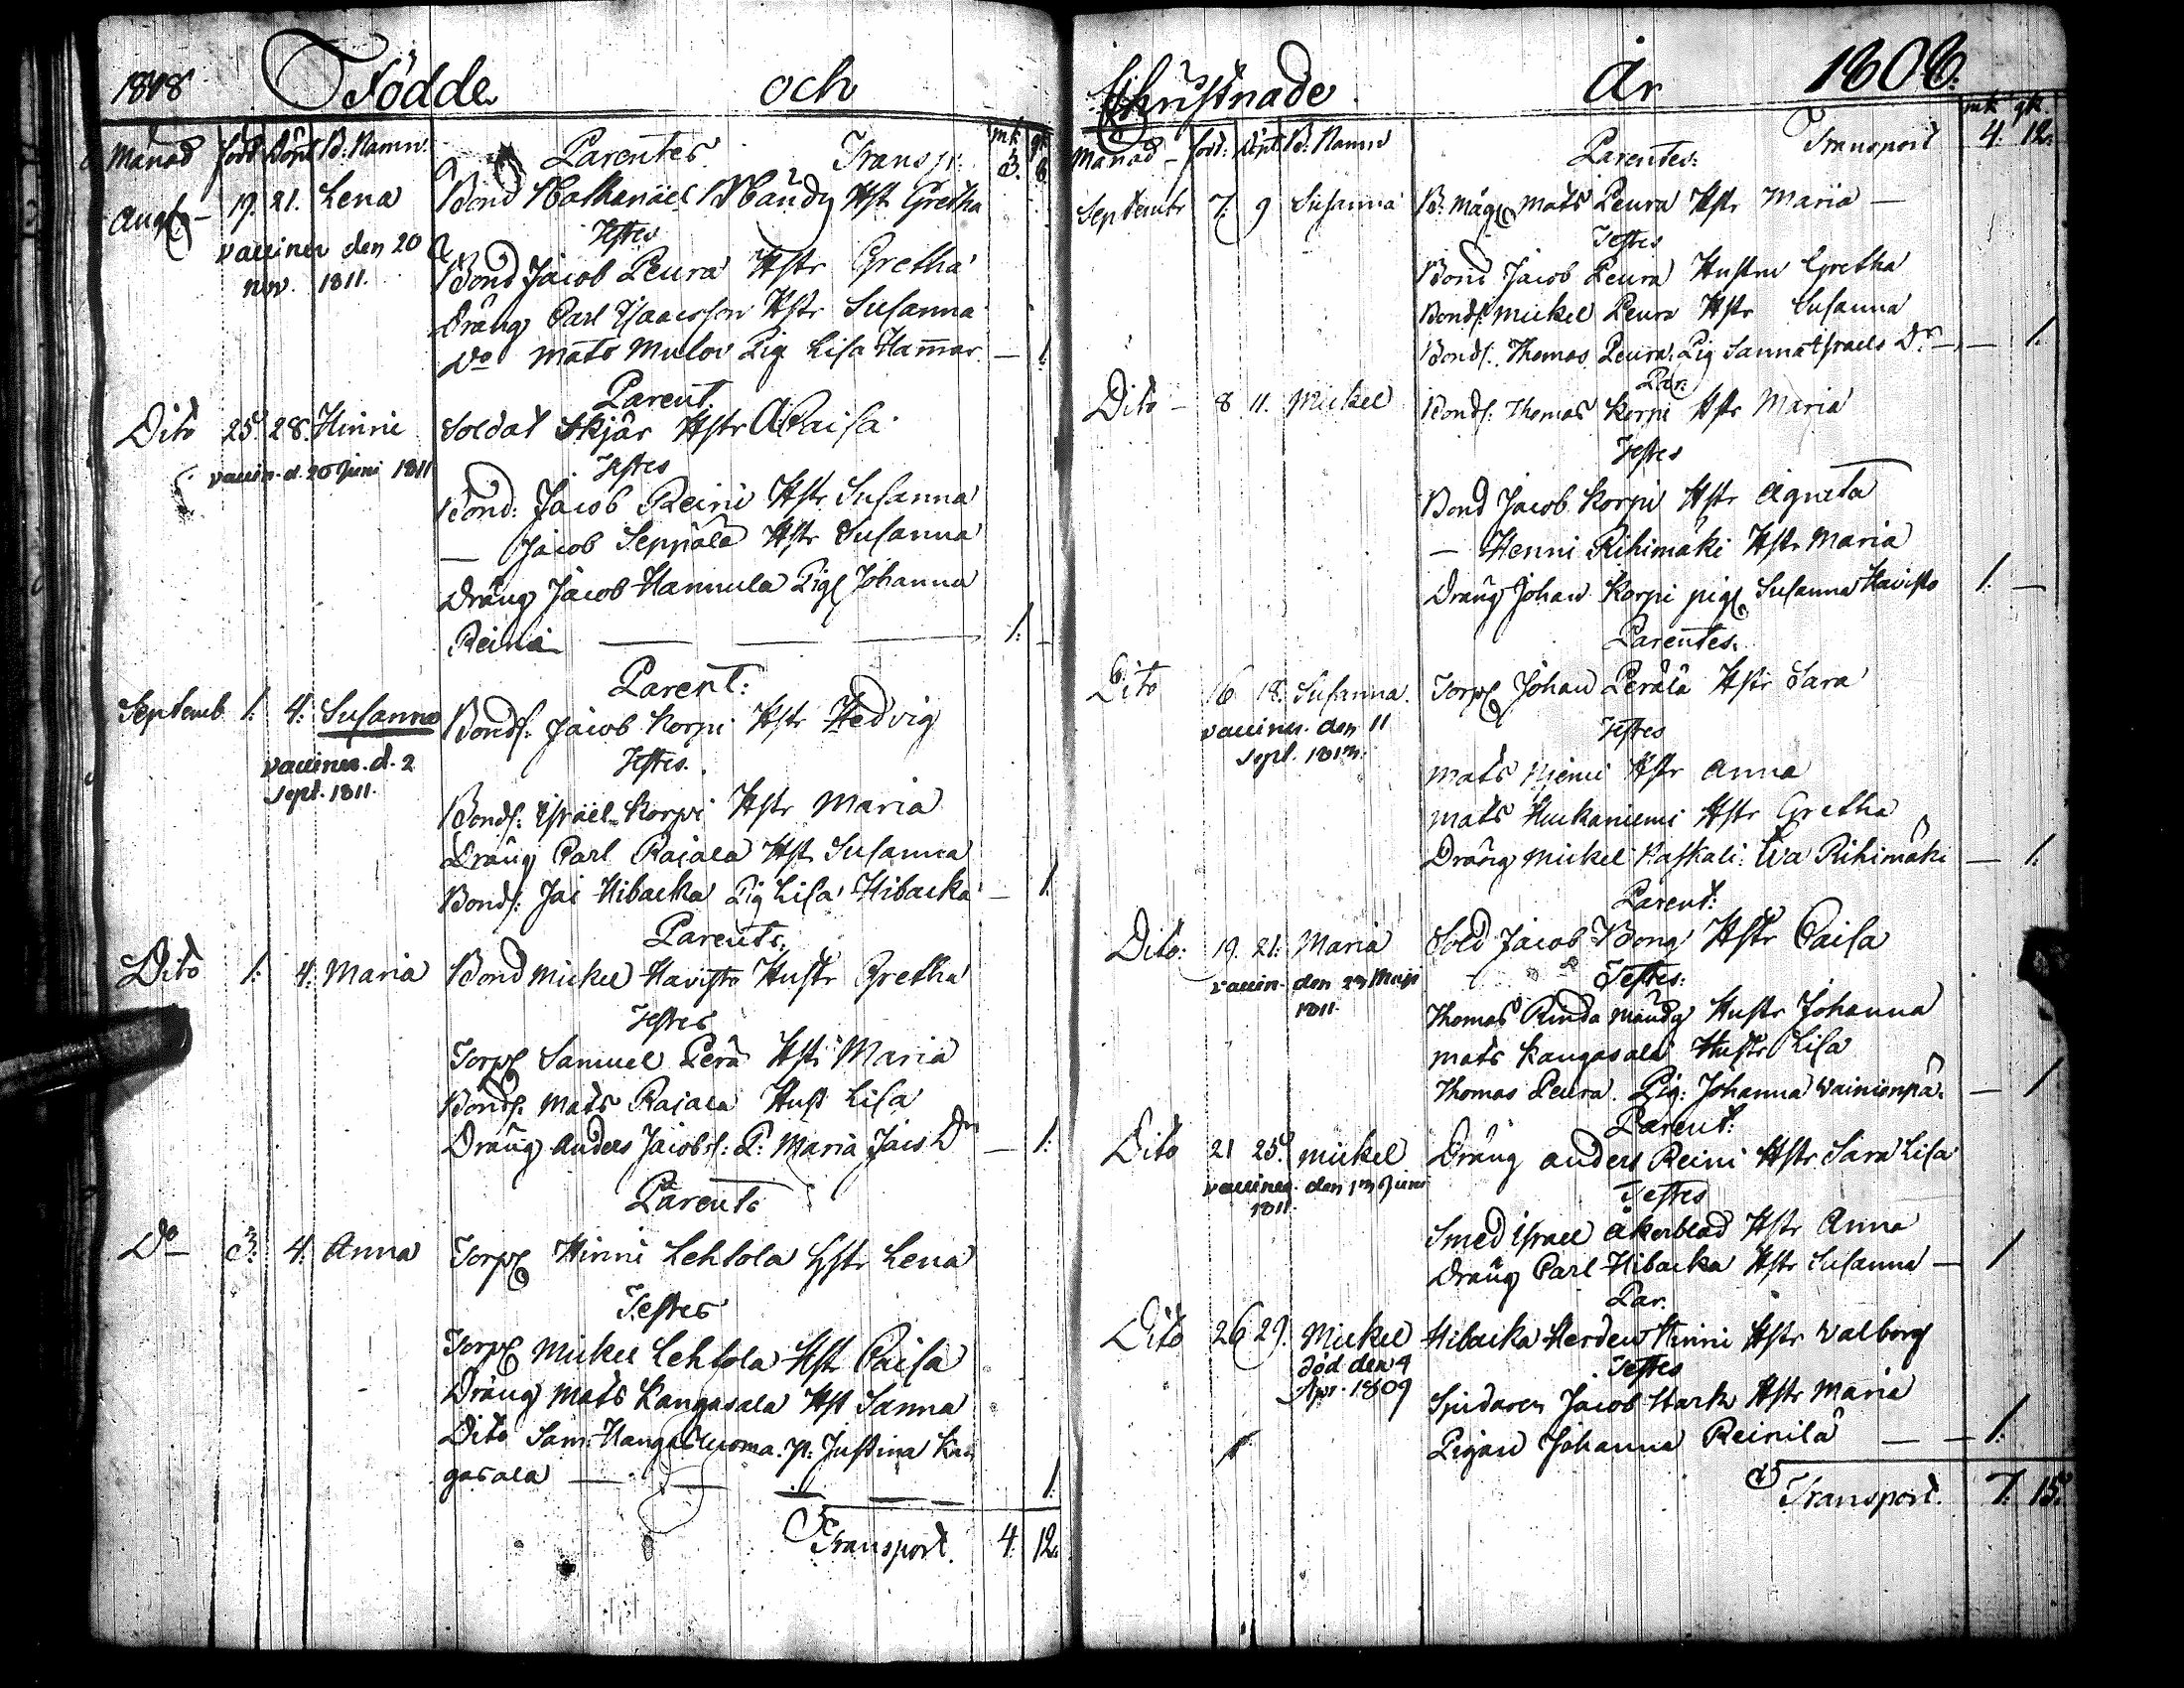 1808 Födde och
Månad född Döpt B: Namn Parentes Transp: mk gk
3. 8
Aug. 19. 21. Lena Bond Nathanäel Mandy Hst Gretha
vacciner den 20 Testes
nov. 1811. Bond Jacob Peura Hstr Gretha
Dräng Carl Isaacsson Hstr Susanna
Do Mats Mulou Pig Lisa Hammar — 1.
Parent.
Dito 25. 28. Hinric Soldat Skjär Hstr Caisa
vaccin. d. 20 Juni 1811 Testes
Bond: Jacob Reini Hstr Susanna
— Jacob Seppälä Hstr Susanna
Dräng Jacob Hannula Pig Johanna
Reini — — — 1. –
Parent:
Septemb. 1. 4. Susanna Bonds: Jacob Korpi Hstr Hedvig
vacciner. d. 2 Testes.
Sept. 1811. Bonds: Israel Korpi Hstr Maria
Dräng Carl Rajala Hst Susanna
Bonds: Jac Hibacka Pig Lisa Hibacka — 1.
Parents.
Dito 1. 4. Maria Bond Mickel Havisto Hustr Gretha
Testes
Torp Samuel Perä Hstr Maria
Bonds. Mats Rajala Hust Lisa
Dräng Anders Jacobs: P. Maria Jacs Dr — 1.
Parents
Do 3. 4. Anna Torp Hinric Lehtola Hstr Lena
Testes
Torp Mickel Lehtola Hstr Caisa
Dräng Mats Kangasala Hst Sanna
Dito Sam: Hangasluoma. p. Justina Kan
gasala — — — 1.
Transport. 4. 12.
Christnade År 1808.
Månad – född: döpt B: Namn Parentes: Transport mk gk
4. 12.
Septembr 7. 9 Susanna B: Måg Mats Peura Hstr Maria —
Testes
Bond Jacob Peura Hustru Gretha
Bonds: Mickel Peura Hstr Susanna
Bonds. Thomas Peura, Pig Sanna Israels Dr — 1.
Par:
Dito – 8 11. Mickel Bonds: Thomas Korpi Hstr Maria
Testes
Bond Jacob Korpi Hstr Agneta
— Henric Rihimäki Hstr Maria
Dräng Johan Korpi pig Susanna Havisto 1. —
Parentes.
Dito 16 18. Susanna. Torp Johan Perälä Hstr Sara
vacciner. den 11 Testes
Sept. Mats Niemi Hstr Anna
Mats Huckaniemi Hstr Gretha
Dräng Mickel Kaskali: Eva Rihimäki — 1.
Parent:
Dito: 19. 21. Maria Sold Jacob Bong Hstr Caisa
vaccin. den 23 Maji Testes:
1811. Thomas Rinda måndg Hustr Johanna
Mats Kangasala Hustr Lisa
Thomas Peura. Pig: Johanna Wainionpä. — 1
Parent:
Dito 21 25. Mickel Dräng Anders Reini Hstr Sara Lisa
vacciner. den 13 Juni Testes
1811. Smed Israel Åkerblad Hstr Anna
Dräng Carl Hibacka Hstr Susanna — 1
Par.
Dito 26 29. Mickel Hibacka Herden Hinric Hstr Walborg
död den 4 Testes
Apr. 1809 Spidaren Jacob Stark Hstr Maria
Pigan Johanna Reinilä — — 1.
Transport. 7. 15.